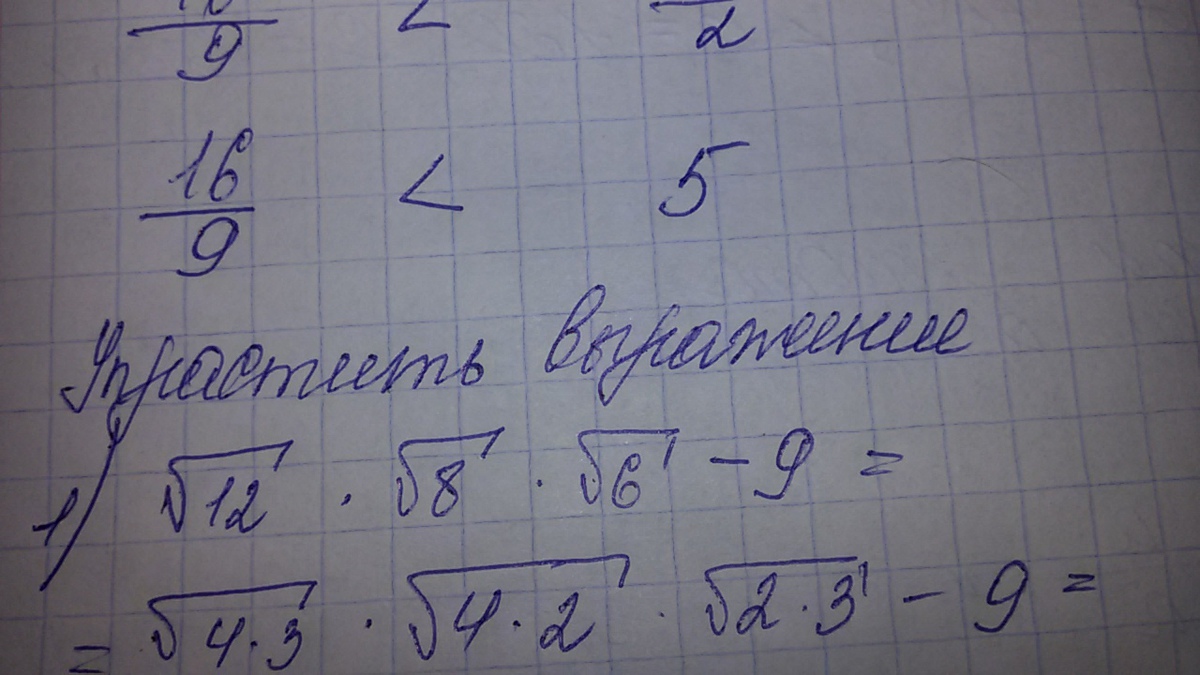 9 < 2
16/9 < 5
Упрастить выражение
1) √12 · √8 · √6 - 9 =
= √4·3 · √4·2 · √2·3 - 9 =